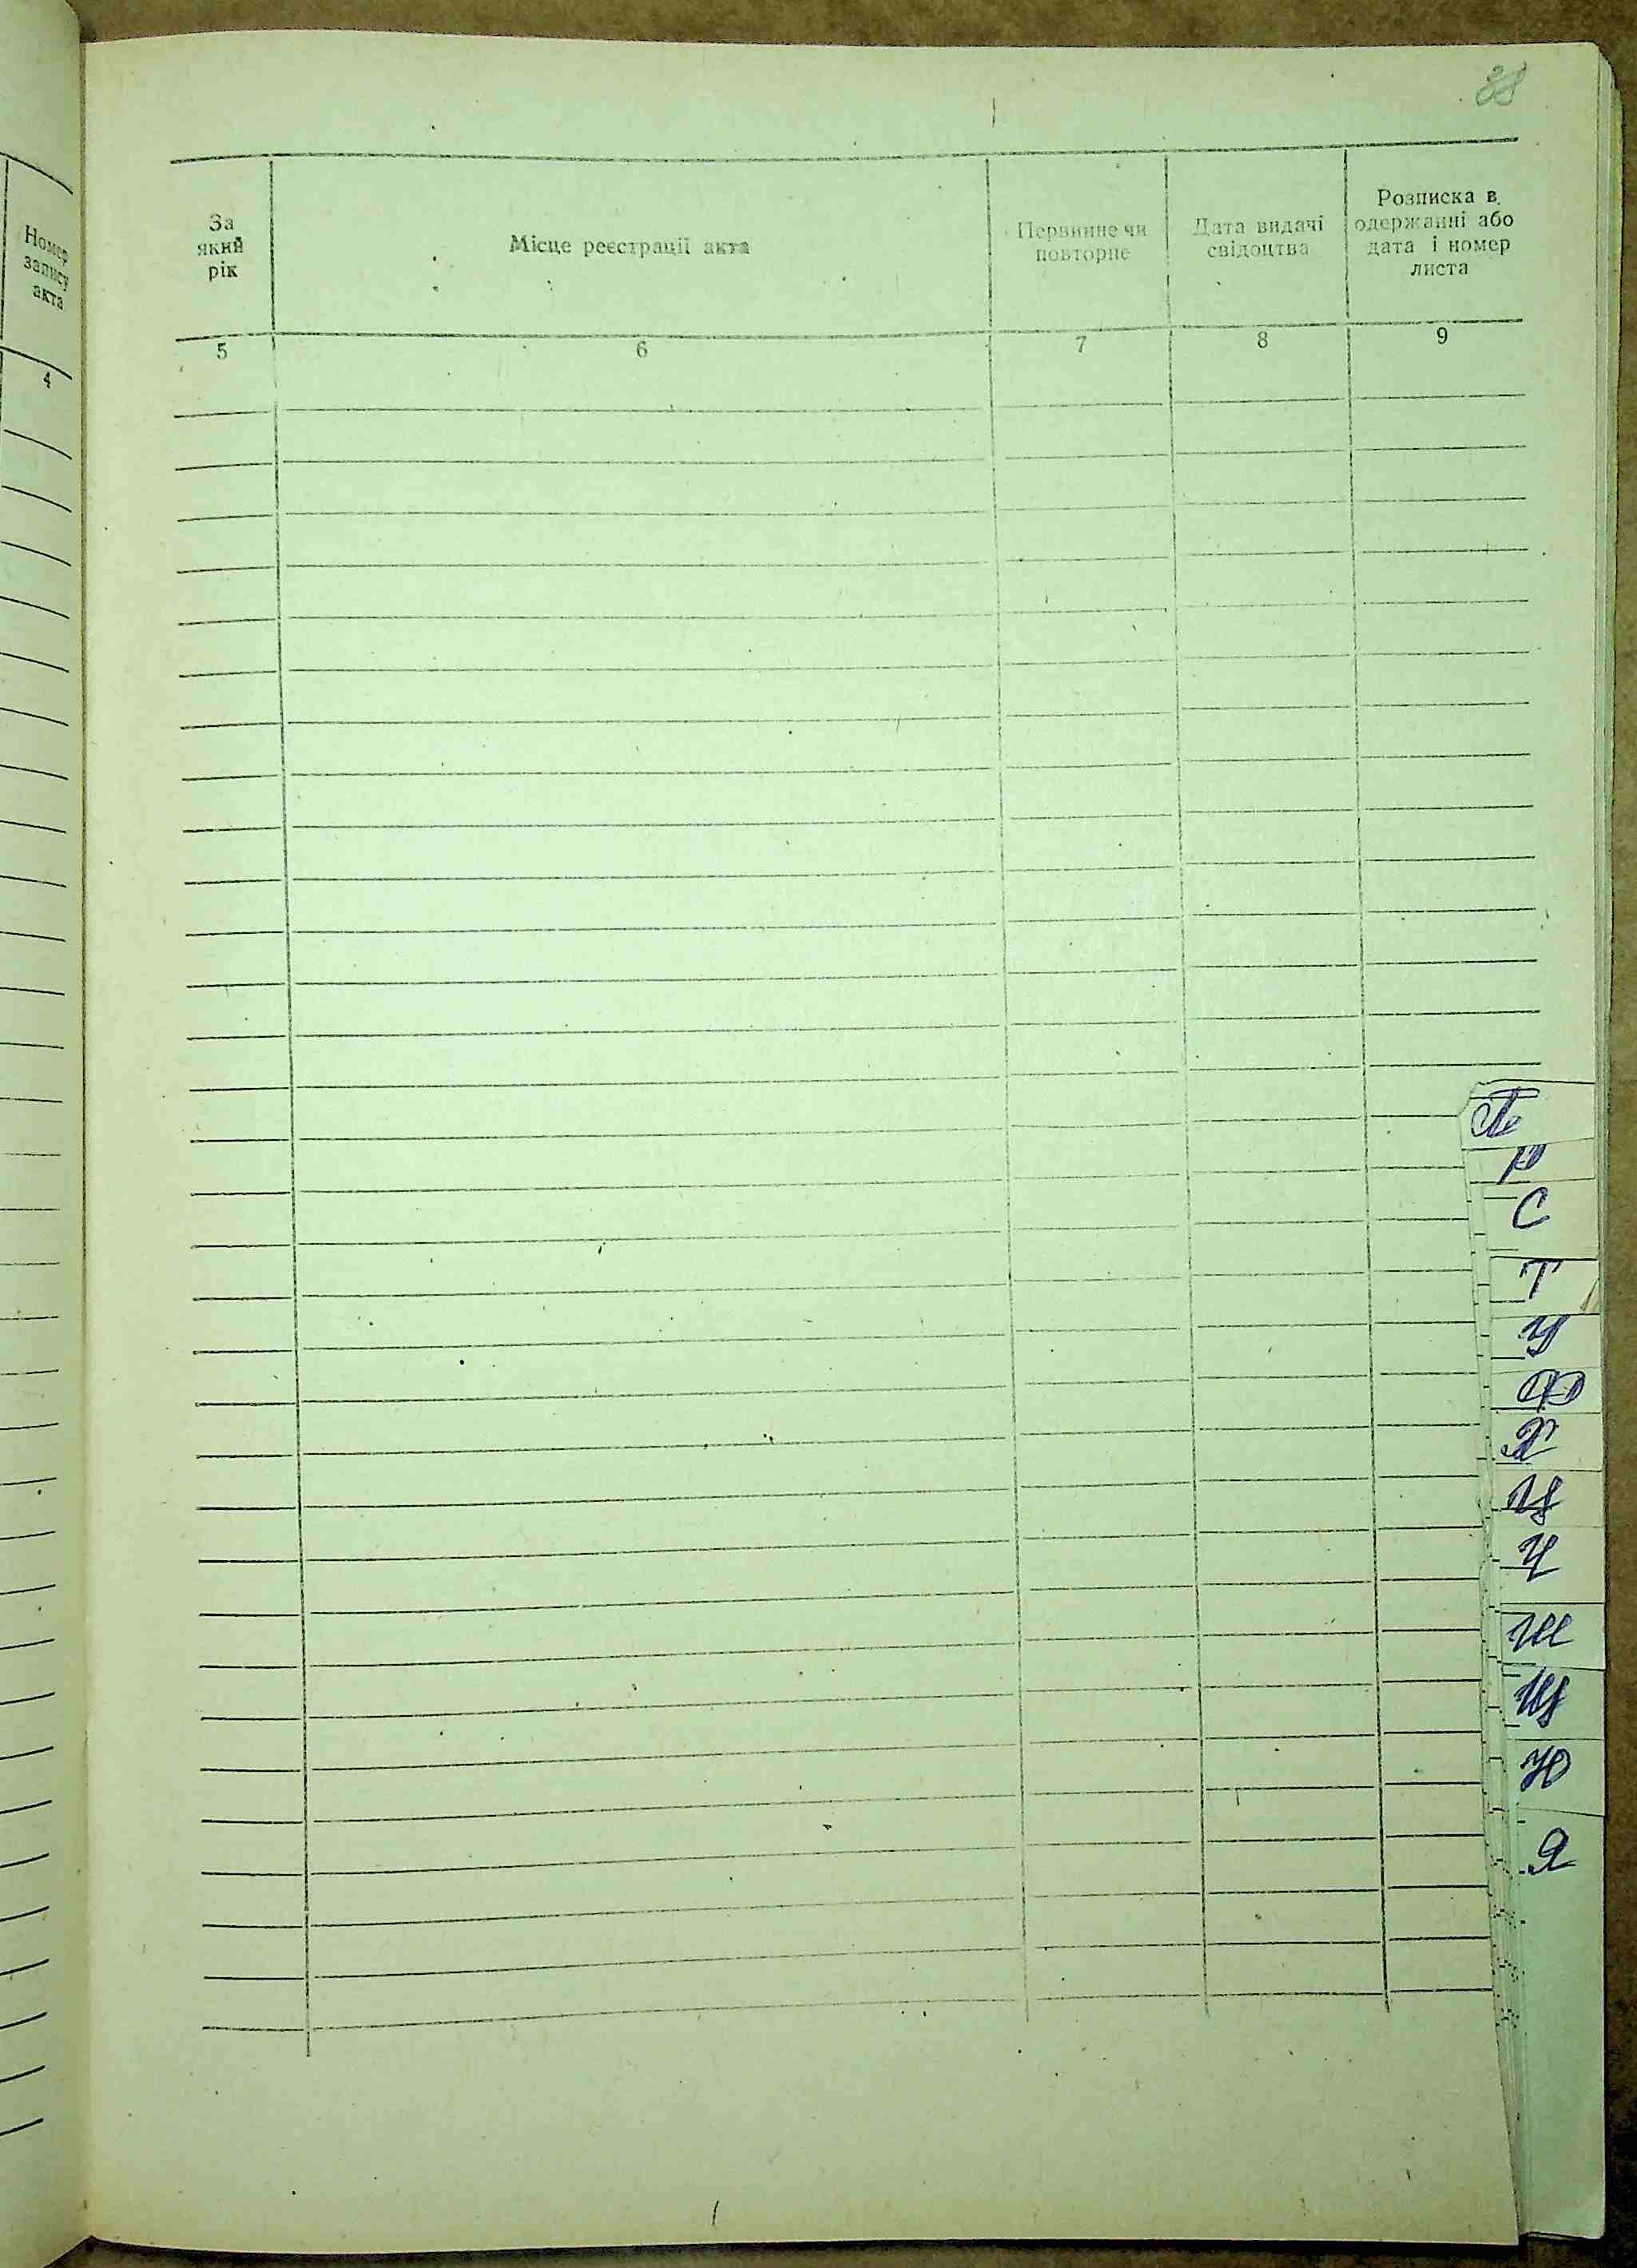 38
Номер
запису
акта
4
За
який
рік
Місце реєстрації акта
Первинне чи
повторне
Дата видачі
свідоцтва
Розписка в
одержанні або
дата і номер
листа
5
6
7
8
9
П
Р
С
Т
У
Ф
Х
Ц
Ч
Ш
Щ
Ю
Я